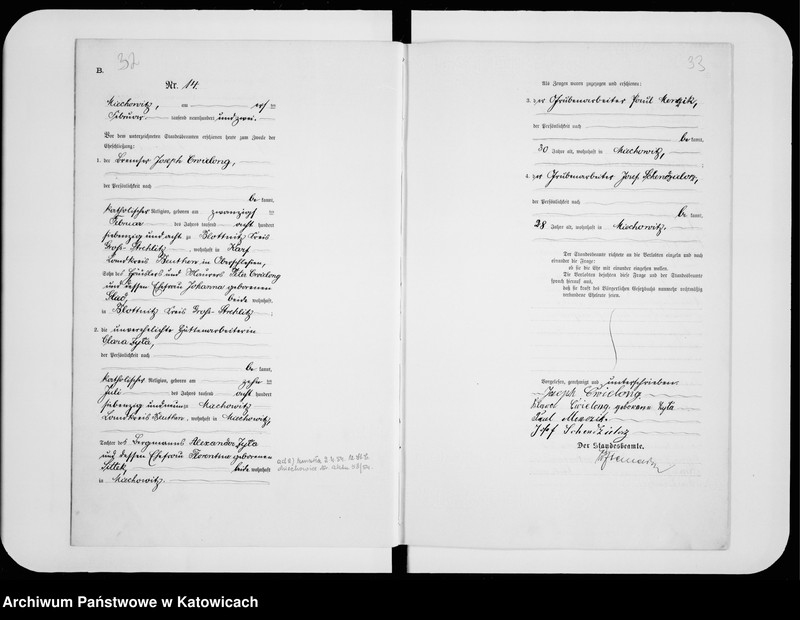 32
B.
Nr. 14.
Miechowitz, am elf ten
Februar tausend neunhundert und zwei.
Vor dem unterzeichneten Standesbeamten erschienen heute zum Zwecke der
Eheschließung:
1. der Brenner Joseph Cwielong,
der Persönlichkeit nach
be kannt,
katholischer Religion, geboren am zwanzigsten
Februar des Jahres tausend acht hundert
siebenzig und acht zu Blottnitz Kreis
Groß-Strehlitz, wohnhaft in Karf
Landkreis Beuthen in Oberschlesien,
Sohn des Häuslers und Maurers Cwielong
und dessen Ehefrau Johanna geborenen
beide wohnhaft
in Blottnitz Kreis Groß-Strehlitz
2. die unverehelichte Hüttenarbeiterin
Clara Zyla,
der Persönlichkeit nach
be kannt,
katholischer Religion, geboren am zehn ten
Juli des Jahres tausend acht hundert
siebenzig und neun zu Miechowitz
Landkreis Beuthen, wohnhaft in Miechowitz,
Tochter des Bergmanns Alexander Zyla
und dessen Ehefrau Florentine geborenen
beide wohnhaft
in Miechowitz.
33
Als Zeugen waren zugezogen und erschienen:
3. der Grubenarbeiter Paul
der Persönlichkeit nach
be kannt,
30 Jahre alt, wohnhaft in Miechowitz,
4. der Grubenarbeiter Josef
der Persönlichkeit nach
be kannt,
28 Jahre alt, wohnhaft in Miechowitz.
Der Standesbeamte richtete an die Verlobten einzeln und nach
einander die Frage:
ob sie die Ehe mit einander eingehen wollen.
Die Verlobten bejahten diese Frage und der Standesbeamte
sprach hierauf aus,
daß sie kraft des Bürgerlichen Gesetzbuchs nunmehr rechtmäßig
verbundene Eheleute seien.
Vorgelesen, genehmigt und unterschrieben
Joseph Cwielong
Klara Cwielong geborene Zyla
Paul
Josef
Der Standesbeamte.
Archiwum Państwowe w Katowicach